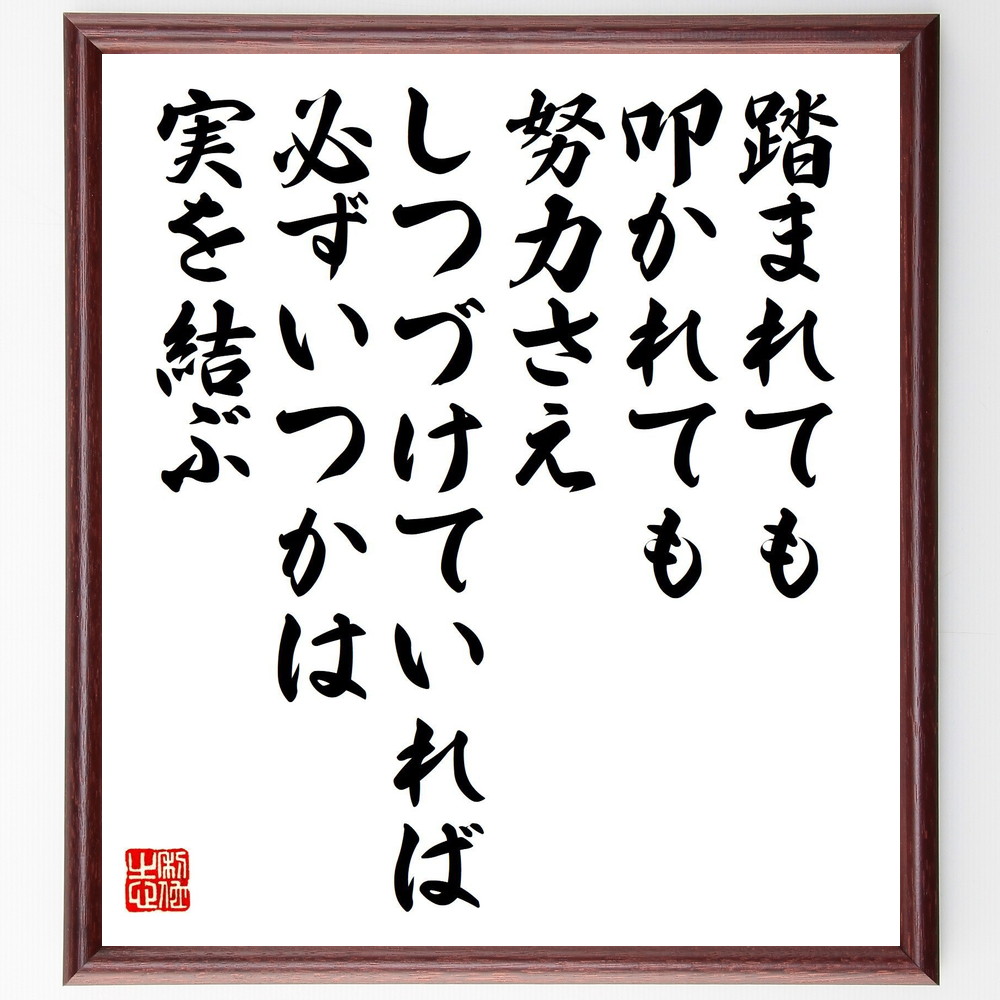 踏まれても
叩かれても
努力さえ
しつづけていれば
必ずいつかは
実を結ぶ